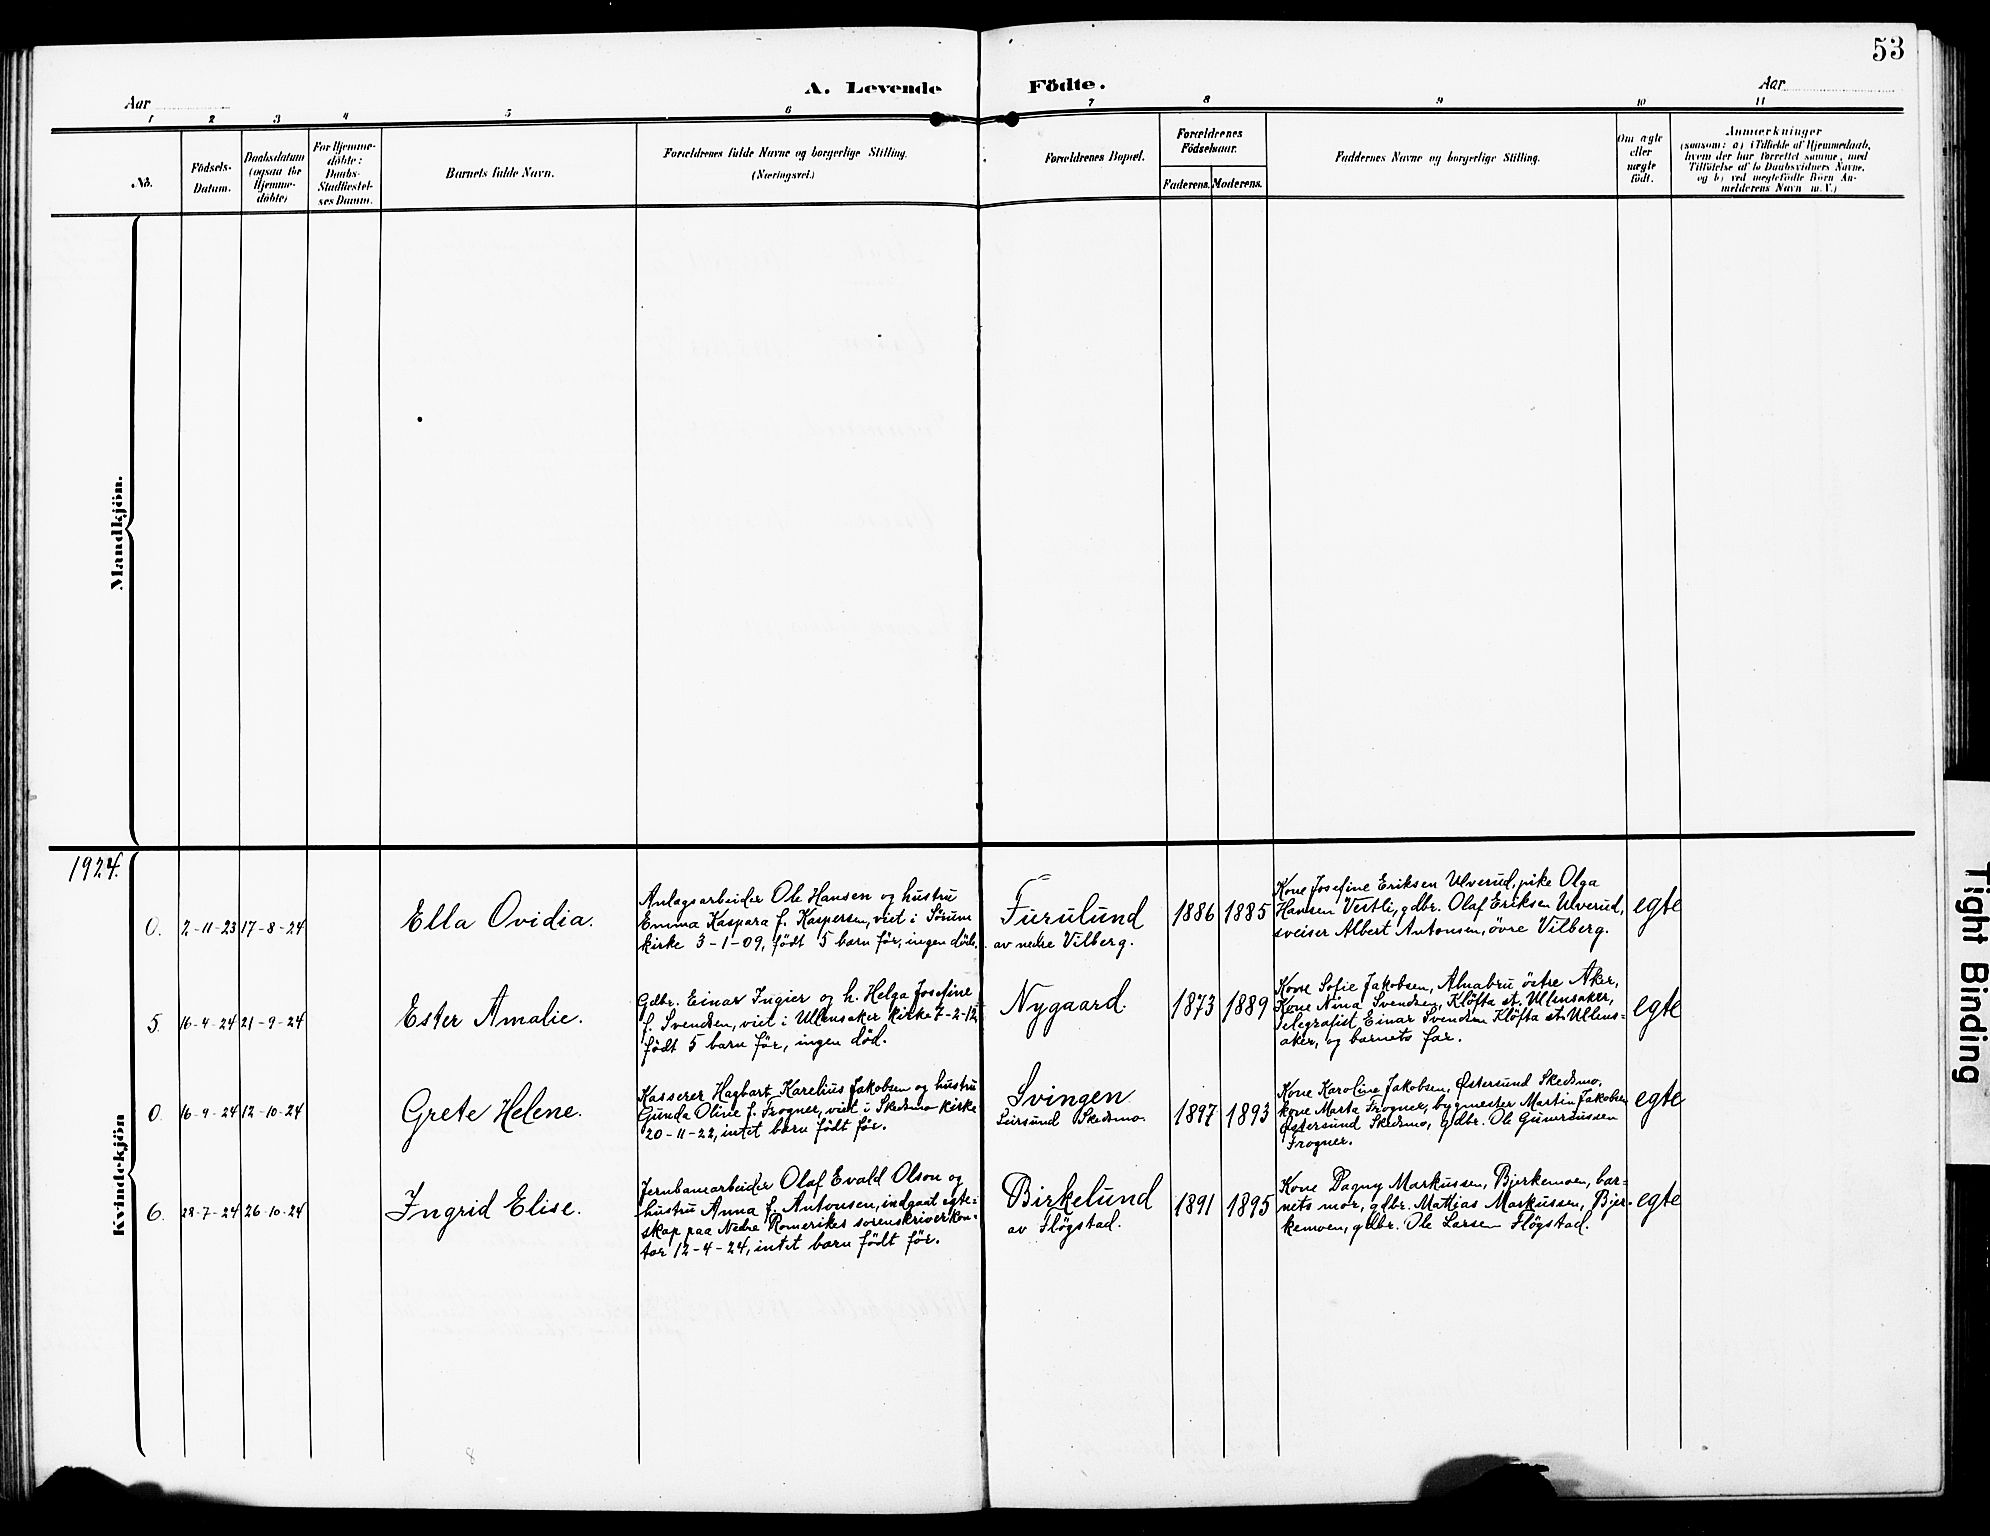 53
A. Levende Födte.
Aar
Aar
1 2 3 4 5 6 7 8 9 10 11
No.
Födsels-
Datum.
Daabsdatum
(ogsaa for
Hjemme-
døbte)
For Hjemme-
døbte:
Daabs-
Stadfæstel-
ses Datum.
Barnets fulde Navn.
Forældrenes fulde Navne og borgerlige Stilling.
(Næringsvei.)
Forældrenes Bopæl.
Forældrenes
Födselsaar.
Faderens. Moderens.
Faddernes Navne og borgerlige Stilling.
Om ægte
eller
uægte
födt.
Anmærkninger
(saasom: a) i Tilfælde af Hjemmedaab,
hvem der har forrettet samme, med
Tilföielse af to Daabsvidners Navne,
og b) ved uægtefödte Börn An-
melderens Navn m. V.)
Mandkjön.
1924.
Kvindekjön
0. 2-11-23 17-8-24
Ella Ovidia.
Anlagsarbeider Ole Hansen og hustru
Emma Kaspara f. Kaspersen, viet i Sørum
kirke 3-1-09, født 5 barn før, ingen døde.
Furulund
av nedre Vilberg.
1886 1885
Kone Josefine Eriksen Ulverud, pike Olga
Hansen Vestli, gdbr. Olaf Eriksen Ulverud,
sveiser Albert Antonsen, övre Vilberg.
egte
5. 16-4-24 21-9-24
Ester Amalie.
Gdbr. Einar Ingier og h. Helga Josefine
f. Svendsen, viet i Ullensaker kirke 7-2-12,
født 5 barn før, ingen død.
Nygaard.
1873 1889
Kone Sofie Jakobsen, Alnabru östre Aker,
Kone Nina Svendsen, Kløfta st. Ullensaker,
telegrafist Einar Svendsen Kløfta st. Ullens-
aker, og barnets far.
egte
0. 16-9-24 12-10-24
Grete Helene.
Kasserer Hagbart Karelius Jakobsen og hustru
Gunda Oline f. Frogner, viet i Skedsmo kirke
20-11-22, intet barn født før.
Svingen
Leirsund Skedsmo.
1897 1893
Kone Karoline Jakobsen, Østersund Skedsmo,
kone Marta Frogner, bygmester Martin Jakobsen
Østersund Skedsmo, gdbr. Ole Gunerussen
Frogner.
egte
6. 28-7-24 26-10-24
Ingrid Elise.
Jernbanearbeider Olaf Evald Olson og
hustru Anna f. Antonsen, indgaat egte-
skap paa Nedre Romerikes sorenskriverkon-
tor 12-4-24, intet barn født før.
Birkelund
av Fløgstad.
1891 1895
Kone Dagny Markussen, Bjerkemoen, bar-
nets mor, gdbr. Mathias Markussen, Bjer-
kemoen, gdbr. Ole Larsen Fløgstad.
egte
8
Tight Binding